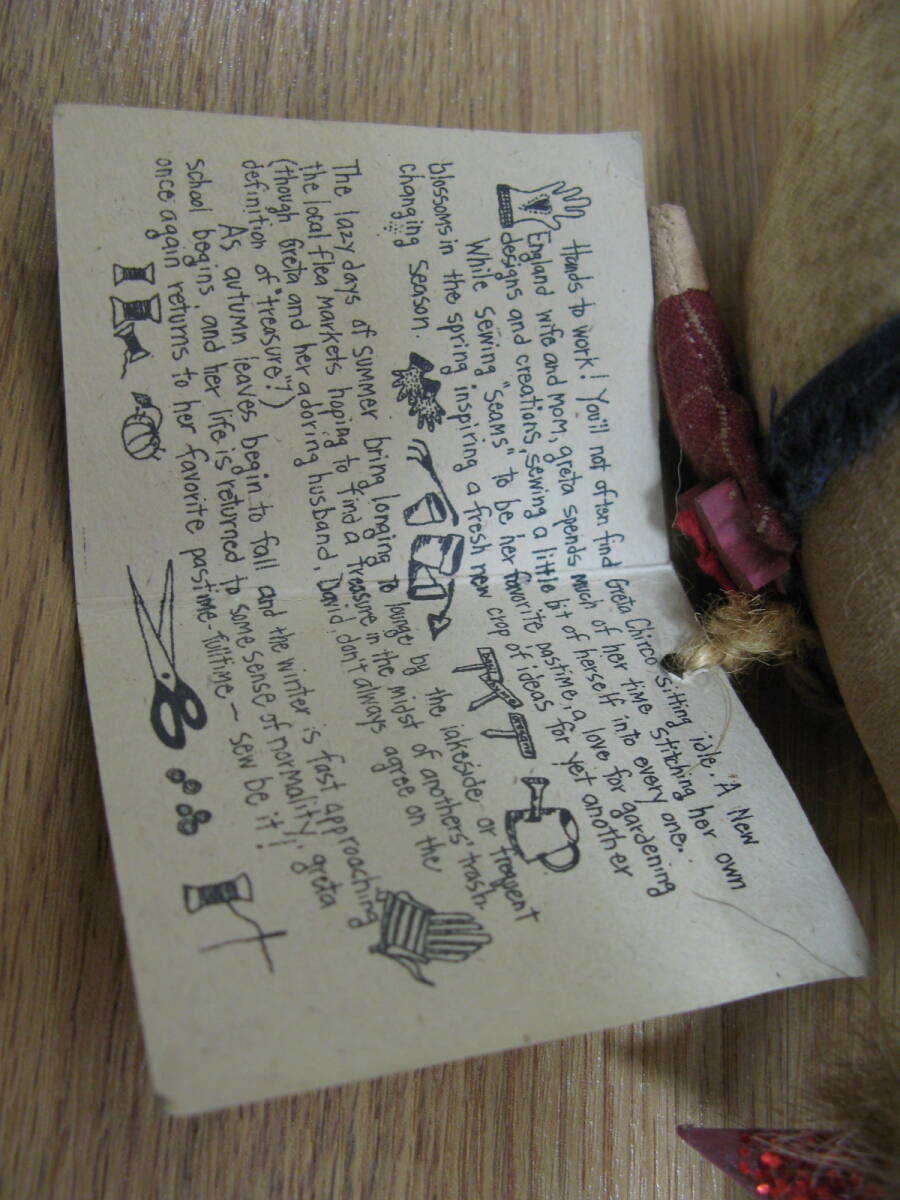 Hands to work! You'll not often find Greta Chirco sitting idle. A New
England wife and mom, greta spends much of her time stitching her own
designs and creations, sewing a little bit of herself into every one.
While sewing "seams" to be her favorite pastime, a love for gardening
blossoms in the spring inspiring a fresh new crop of ideas for yet another
changing season.
The lazy days of summer bring longing to lounge by the lakeside or frequent
the local flea markets hoping to find a treasure in the midst of anothers' trash.
(though Greta and her adoring husband, David, don't always agree on the
definition of "treasure"!)
As autumn leaves begin to fall and the winter is fast approaching
school begins, and her life is returned to some sense of normality, greta
once again returns to her favorite pastime fulltime - sew be it!